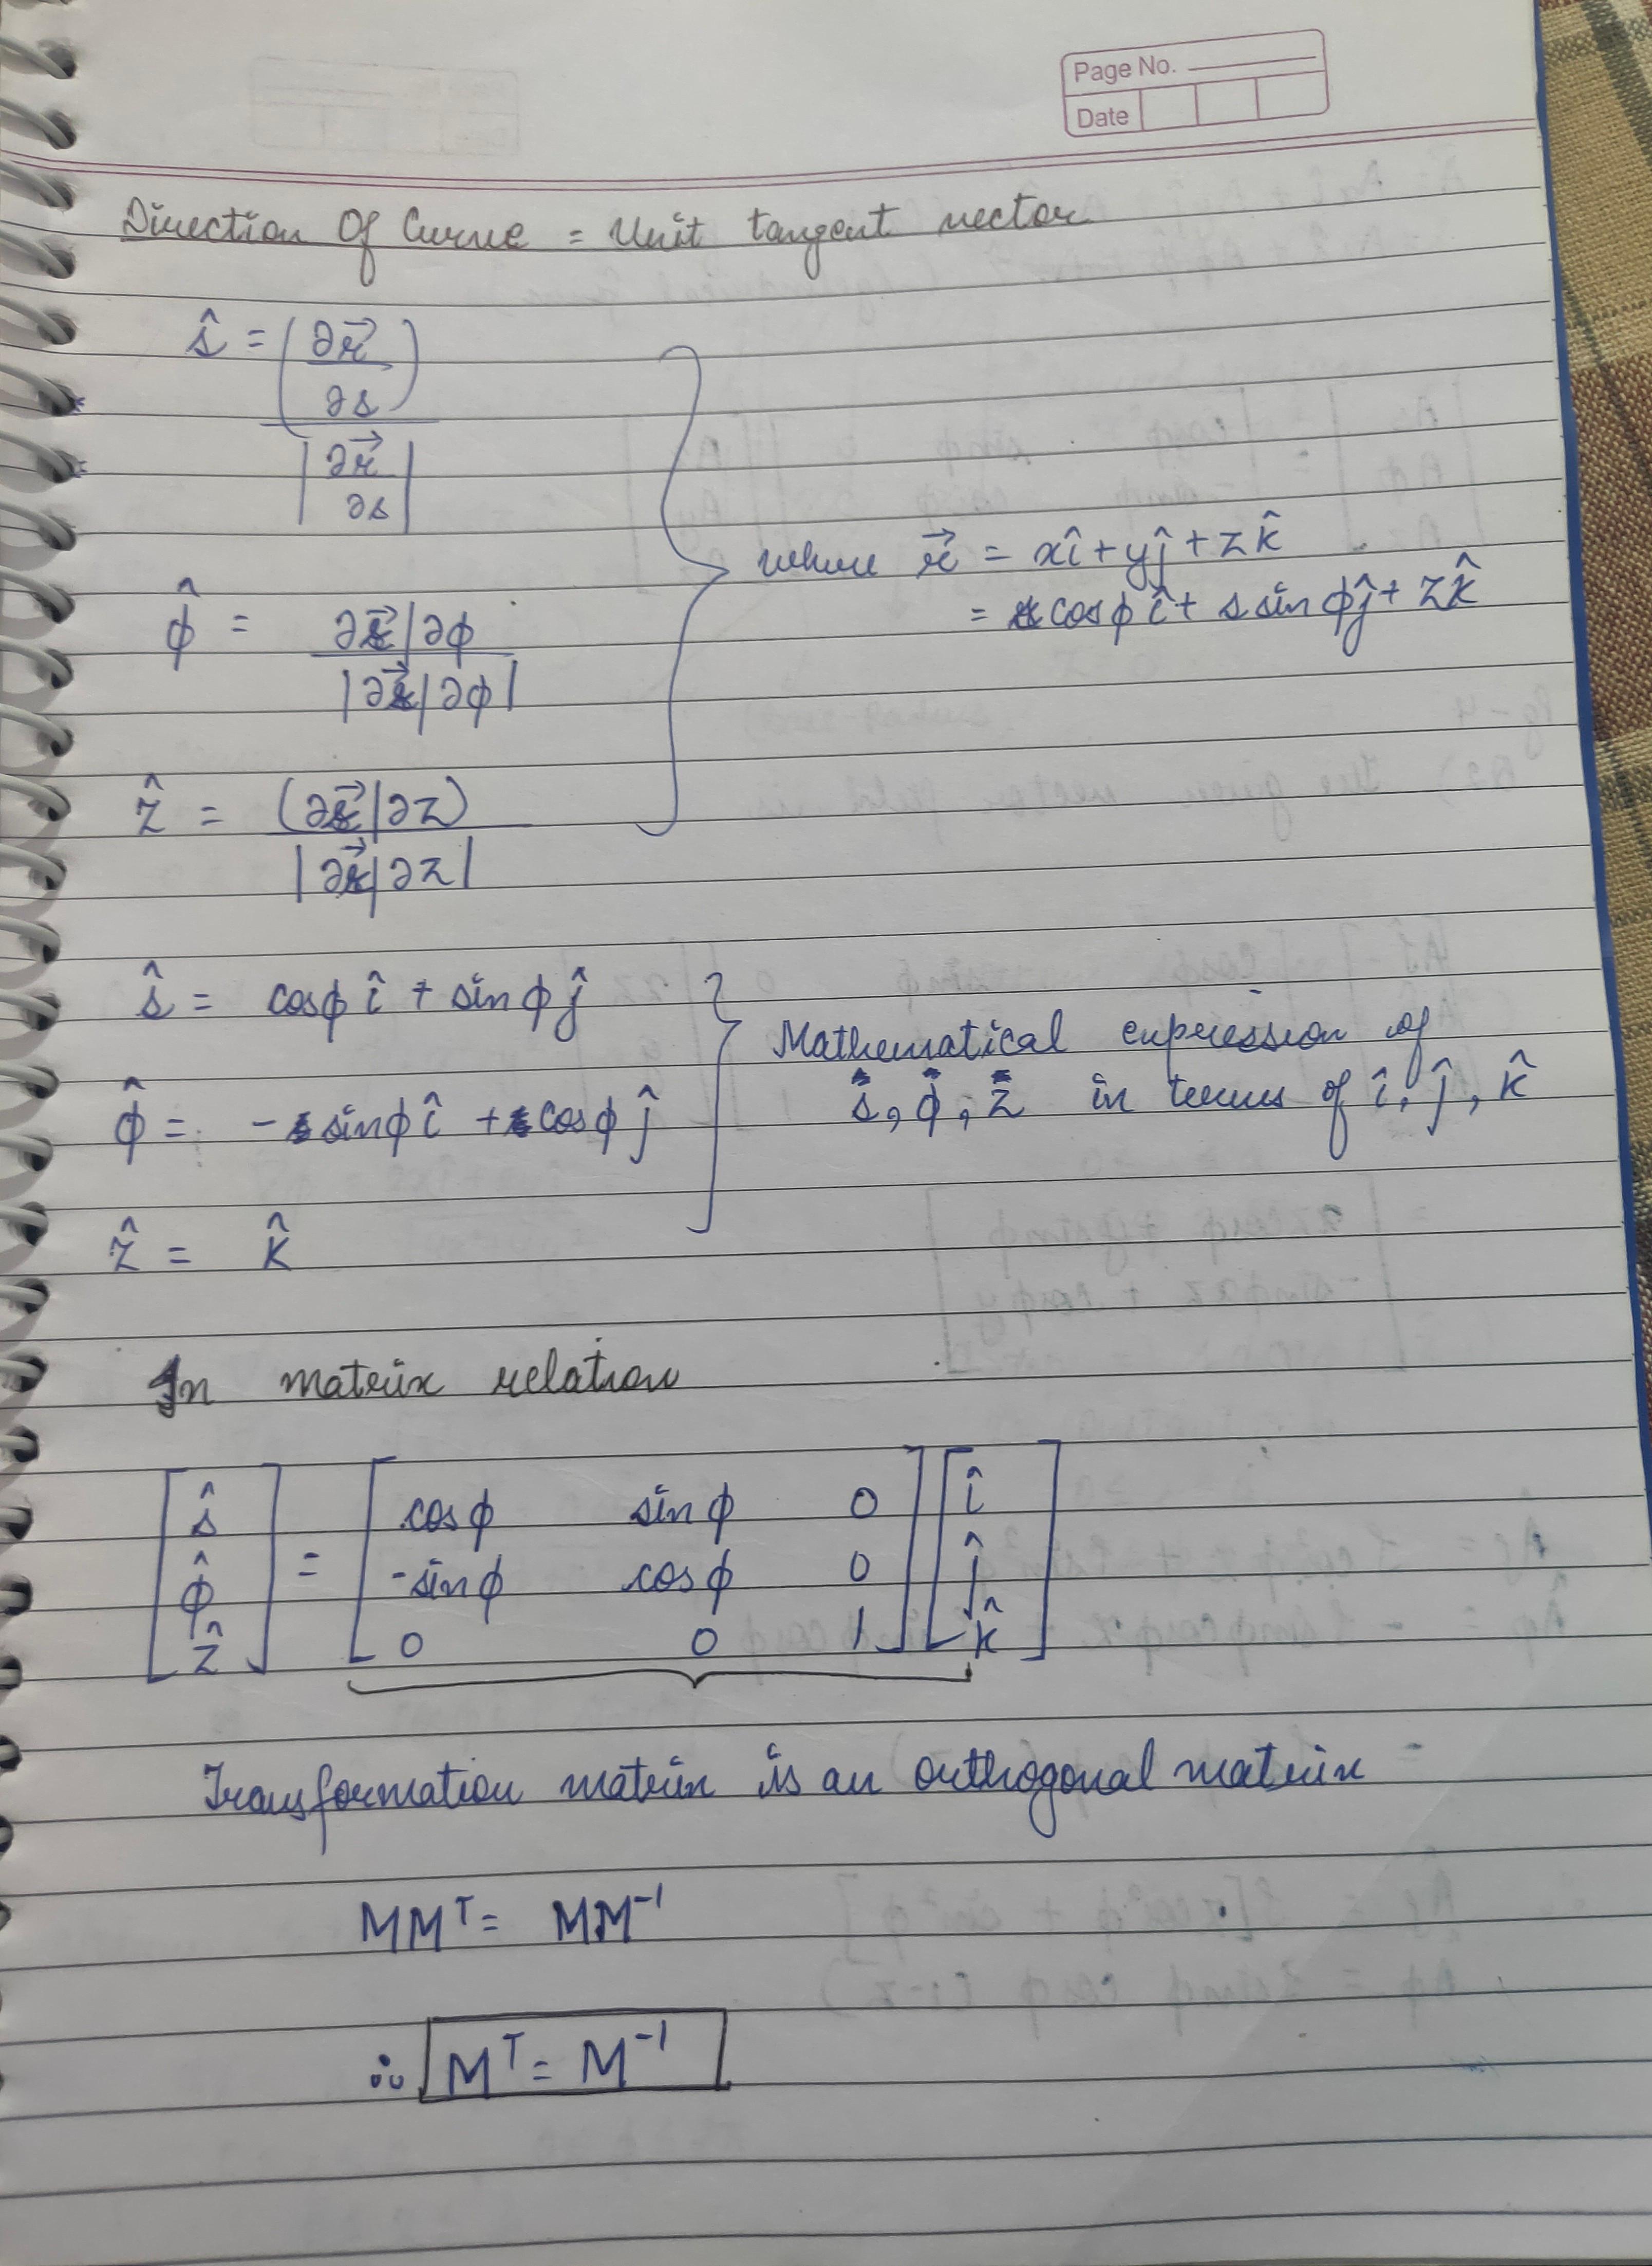 Page No.
Date
Direction Of Curve = Unit tangent vector
ŝ = (∂r⃗/∂s) / |∂r⃗/∂s|
φ̂ = ∂r⃗/∂φ / |∂r⃗/∂φ|
where r⃗ = xî + yĵ + zk̂
= s cosφ î + s sinφ ĵ + zk̂
ẑ = (∂r⃗/∂z) / |∂r⃗/∂z|
ŝ = cosφ î + sinφ ĵ
φ̂ = - sinφ î + cosφ ĵ
ẑ = k̂
Mathematical expression of
ŝ, φ̂, ẑ in terms of î, ĵ, k̂
In matrix relation
[ŝ] = [cosφ sinφ 0] [î]
[φ̂] [-sinφ cosφ 0] [ĵ]
[ẑ] [0 0 1] [k̂]
Transformation matrix is an orthogonal matrix
MMᵀ = MM⁻¹
∴ Mᵀ = M⁻¹